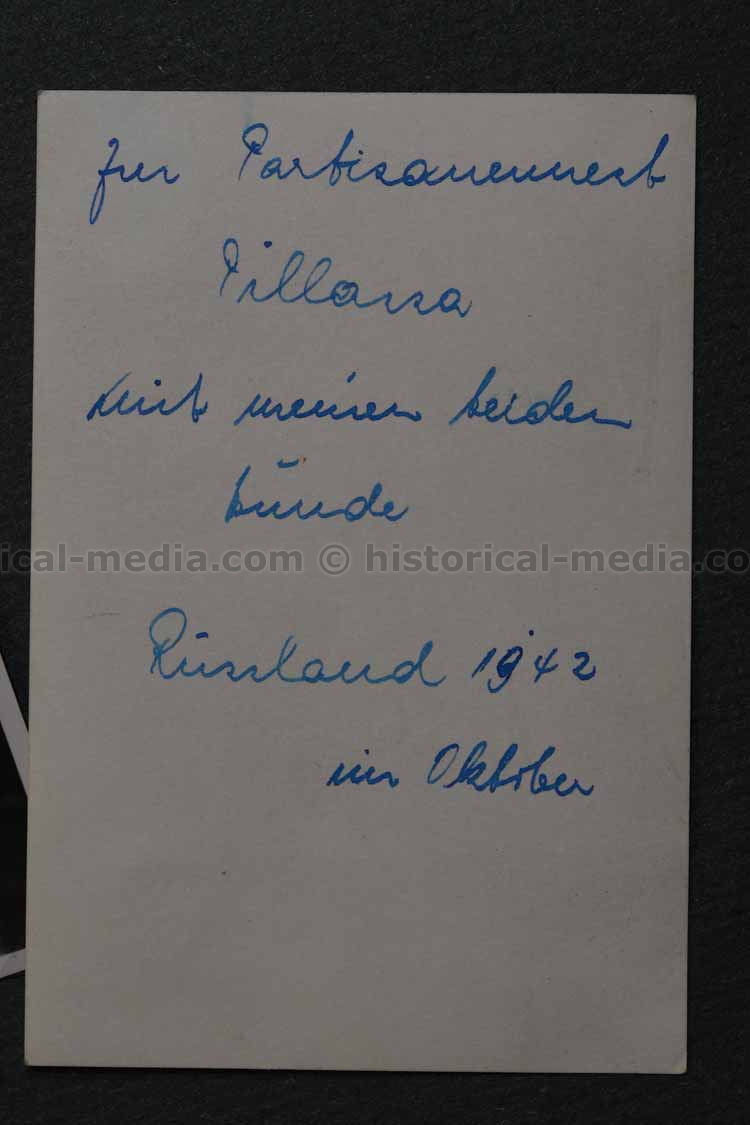 Im Partisanennest
Pillarsa
mit meinen beiden
Hunde
ical-media.com © historical-media.co
Russland 1942
im Oktober